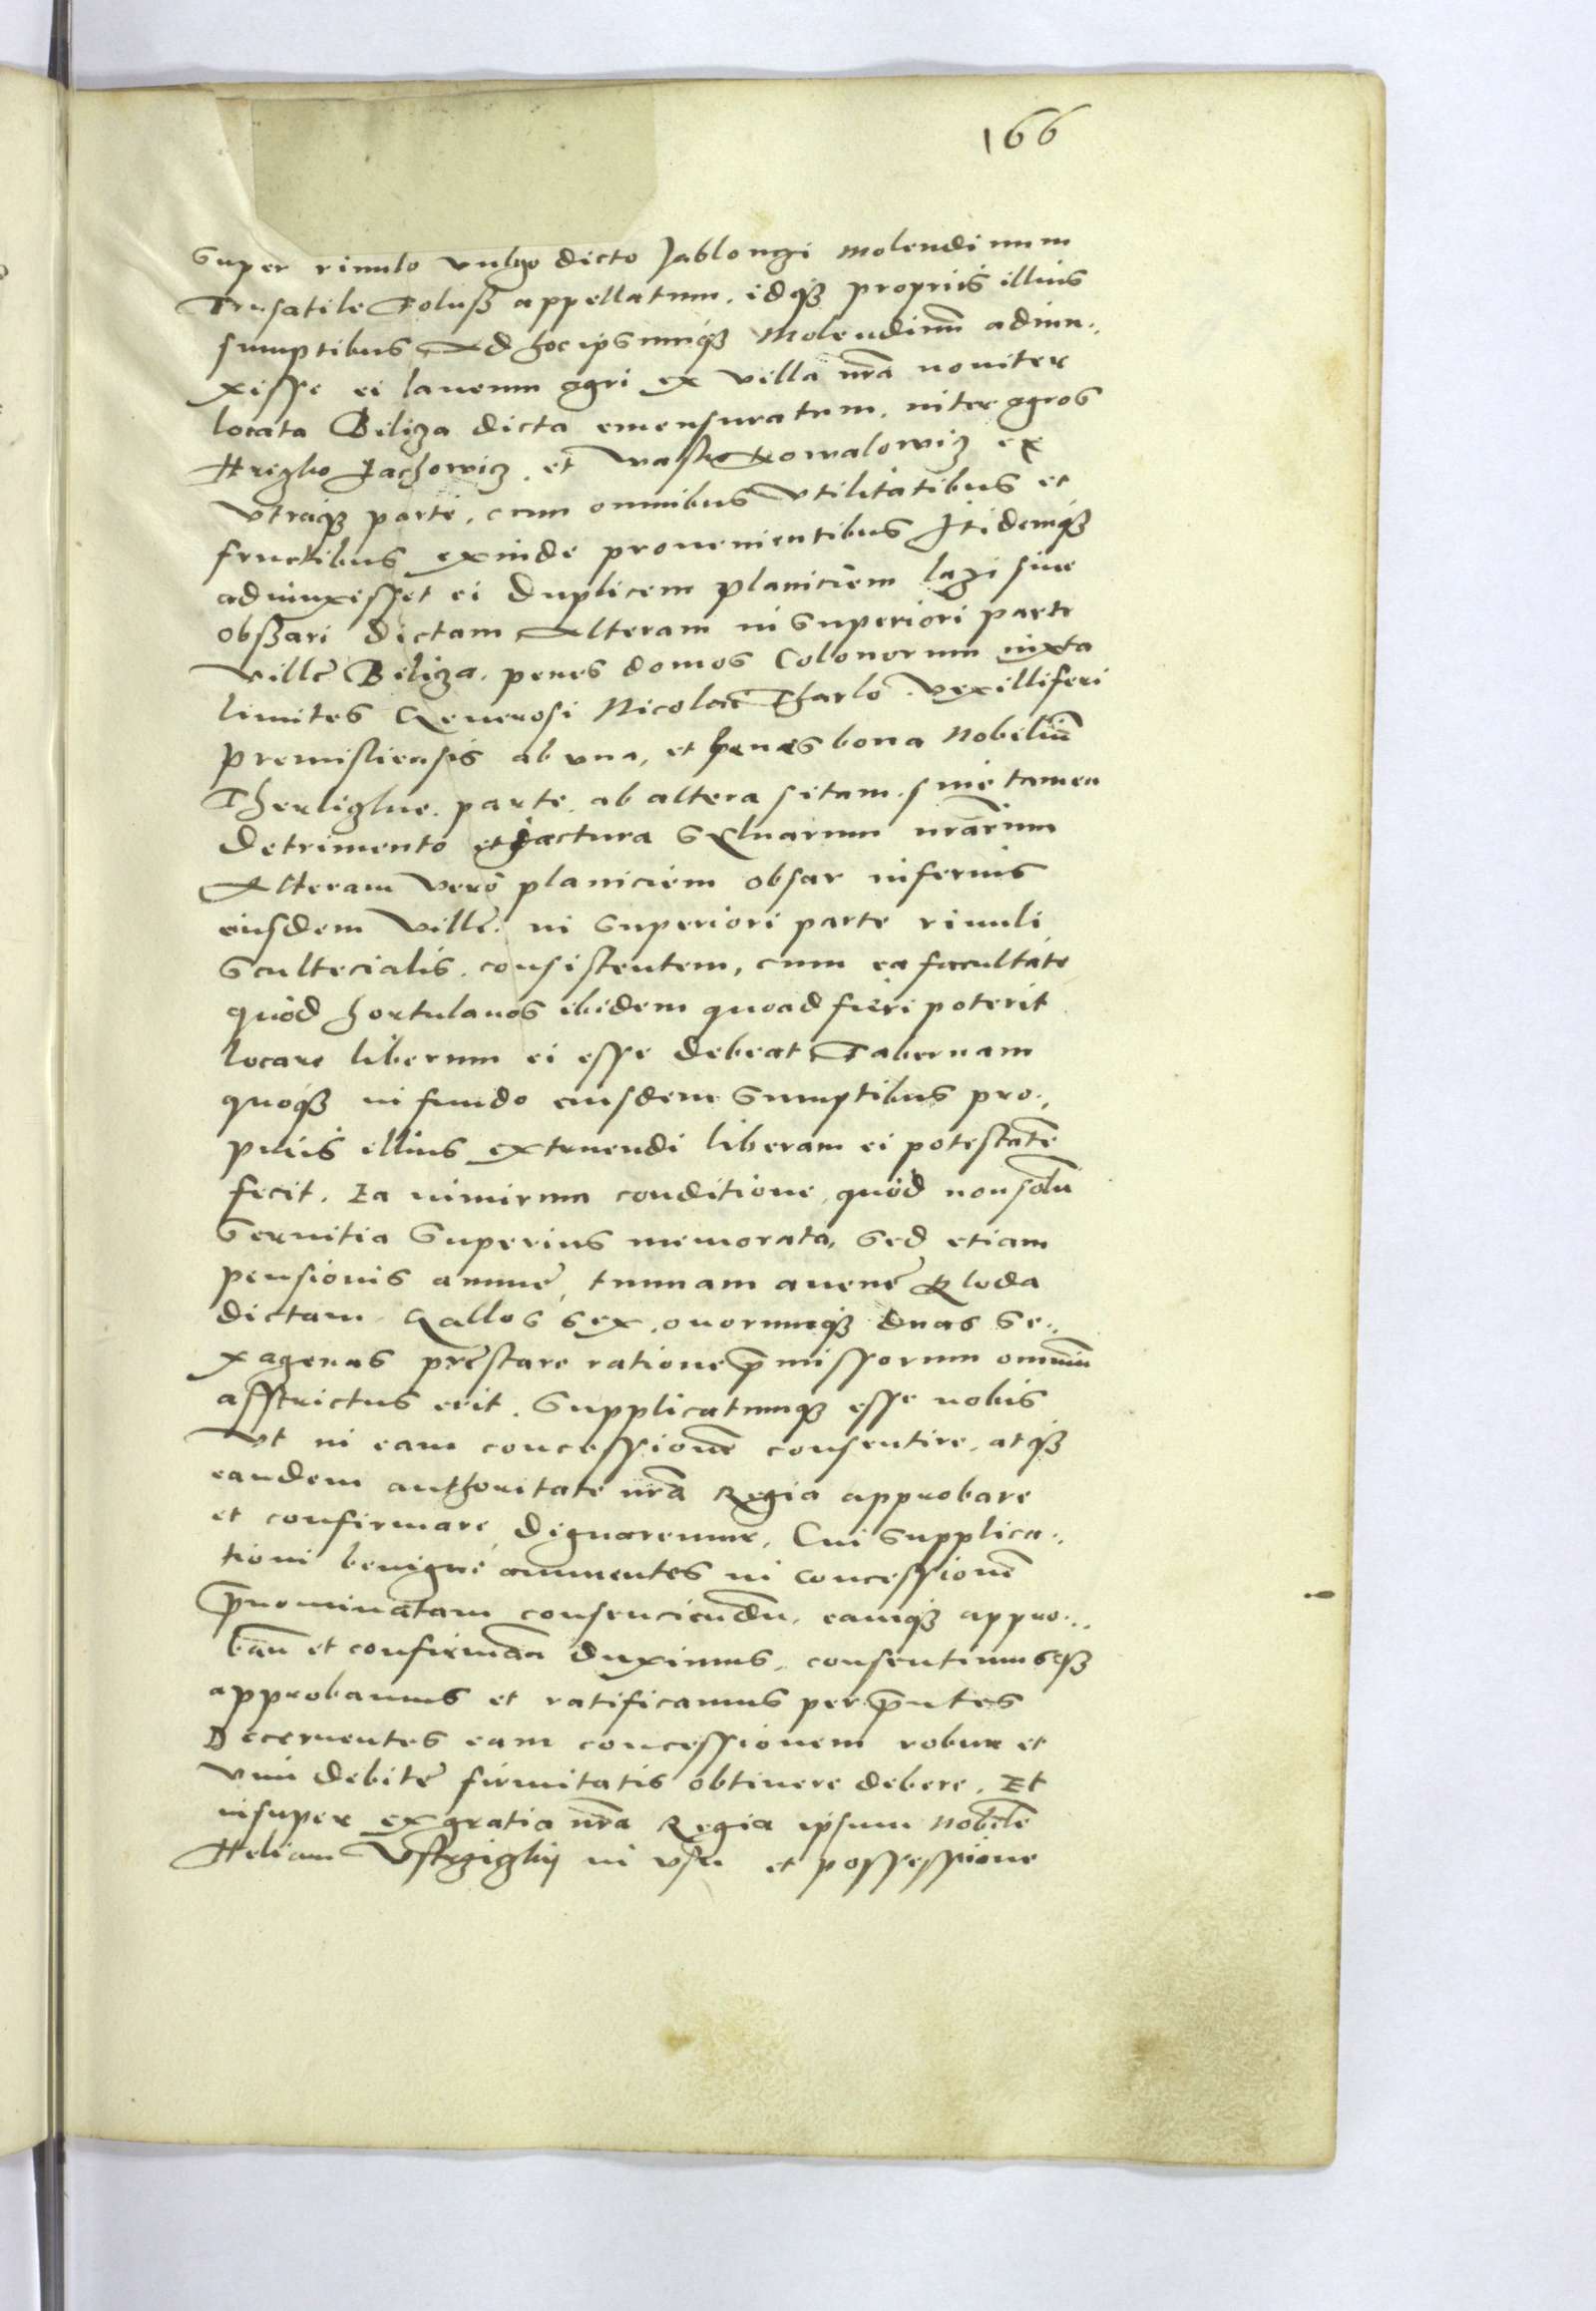 166
Super riuulo vulgo dicto Jablongi molendinum
Trusatile Foluß appellatum. idqȝ propriis illius
sumptibus Ad hoc ipsumqȝ Molendinū adiun.,
xisse ei laneum agri ex villa nr̃a noviter
locata Beliza dicta emensuratum. inter agros
Hrizko Jachowicz. et Wasko Kowalowicz ex
vtraqȝ parte, cum omnibus vtilitatibus et
fructibus exinde prouenientibus Itidemqȝ
adiunxisset ei Duplicem planiciem lazi siue
obszari dictam Alteram in Superiori parte
villę Beliza. penes domos Colonorum iuxta
limites Generosi Nicolai Tharlo vexilliferi
premisliensis ab vna, et penes bona Nobiliū
parte ab altera sitam. sine tamen
Detrimento et Jactura Syluarum nr̃arum
Alteram vero planiciem obsar inferius
eiusdem villę. in Superiori parte riuuli
Scultecialis. consistentem, cum ea facultate
quòd hortulanos ibidem quoad fieri poterit
locare liberum ei esse debeat Tabernam
quoqȝ in fundo eiusdem Sumptibus pro.,
priis illius extruendi liberam ei potestatē
fecit. Ea nimirum conditione, quòd non solū
Seruitia Superius memorata, Sed etiam
pensionis annuę, tunnam auenę Kloda
dictam Gallos sex, ouorumqȝ duas Se.,
xagenas pręstare ratione p̄missorum omniū
asstrictus erit. Supplicatumqȝ esse nobis
Vt in eam concessionē consentire, atqȝ
eandem authoritate nr̃a Regia approbare
et confirmare dignaremur, Cui Supplica.,
tioni benignè annuentes in concessionē
p̄nominatam consenciendū, eamqȝ appro..
ban̄ et confirmān duximus, consentimusqȝ
approbamus et ratificamus per p̄ntes
Decernentes eam concessionem robur et
vim debitę firmitatis obtinere debere. Et
insuper ex gratia nr̃a Regia ipsum nobilē
Heliam Vstrzigky in vsu et possessione